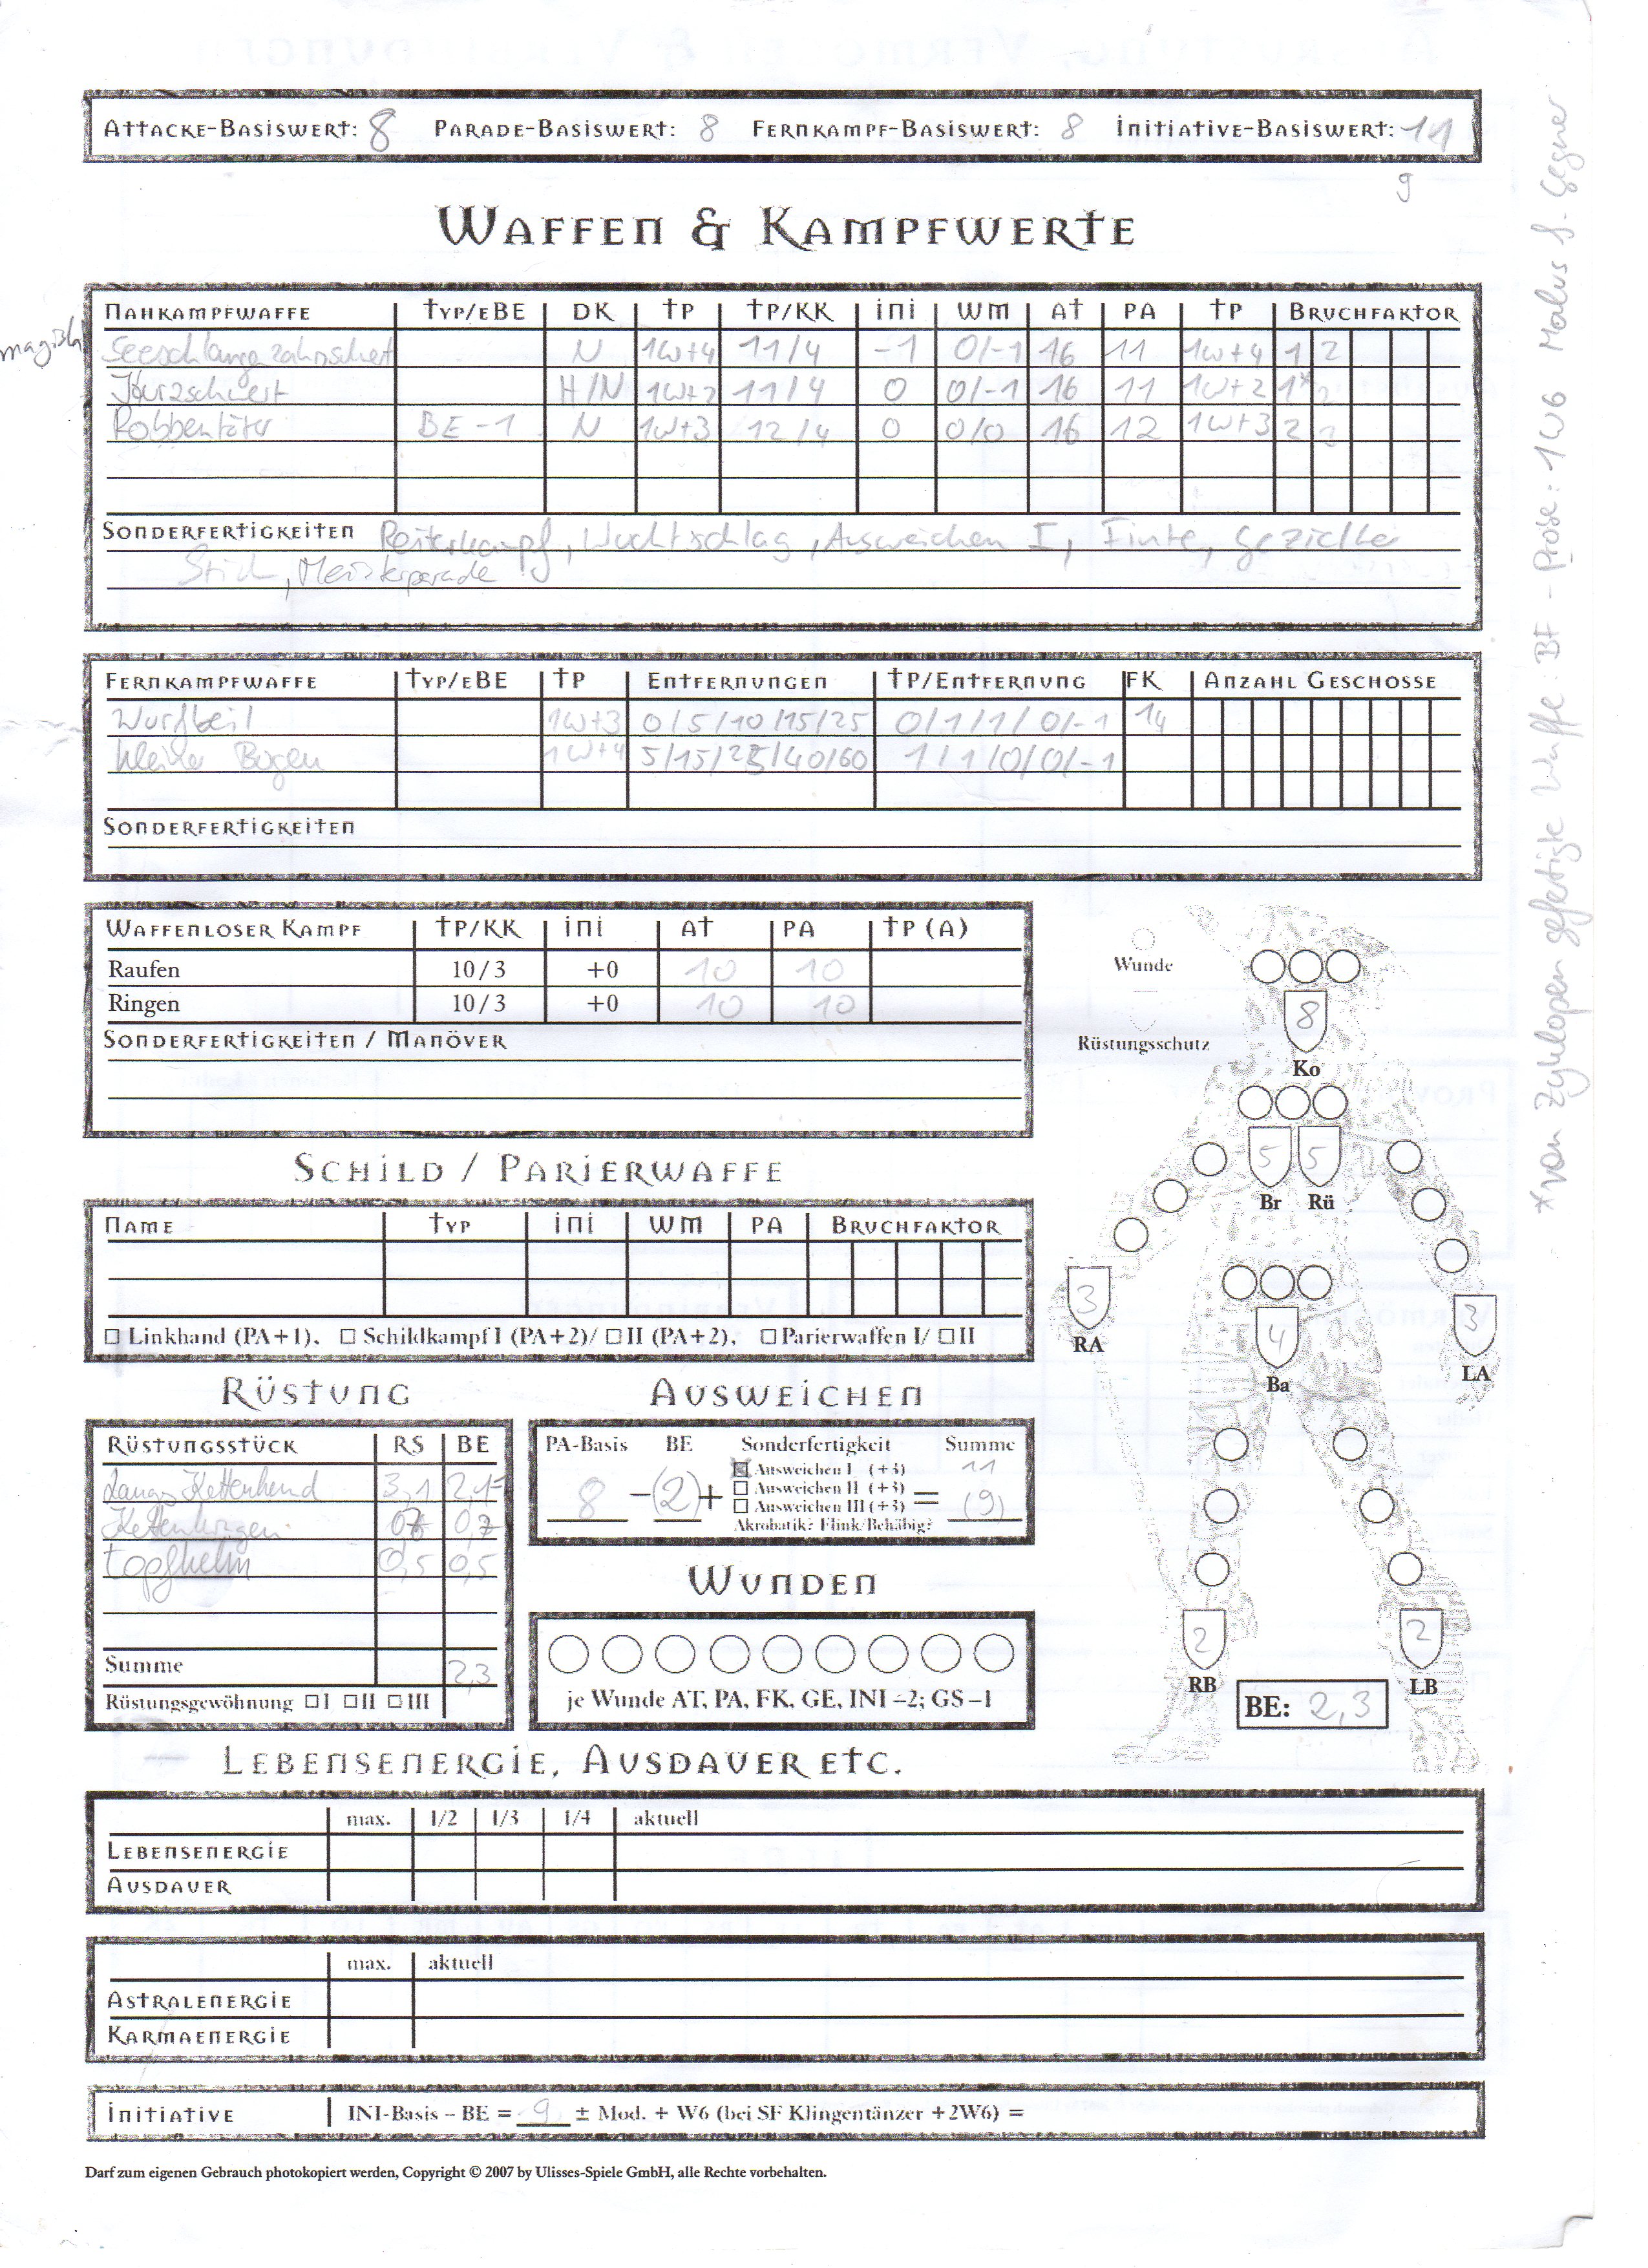 Attacke-Basiswert: 8 Parade-Basiswert: 8 Fernkampf-Basiswert: 8 Initiative-Basiswert: 11
9
Waffen & Kampfwerte
Nahkampfwaffe Typ/eBE DK TP TP/KK INI WM AT PA TP Bruchfaktor
magisch Seeschlangezahnschert N 1W+4 11/4 -1 0/-1 16 11 1W+4 1 2
Kurzschwert H/N 1W+2 11/4 0 0/-1 16 11 1W+2 1*
Robbentöter BE-1 N 1W+3 12/4 0 0/0 16 12 1W+3 2
Sonderfertigkeiten Reiterkampf, Wuchtschlag, Ausweichen I, Finte, gezielter
Stich, Meisterparade
Fernkampfwaffe Typ/eBE TP Entfernungen TP/Entfernung FK Anzahl Geschosse
Wurfbeil 1W+3 0/5/10/15/25 0/1/1/0/-1 14
kleiner Bogen 1W+4 5/15/25/40/60 1/1/0/0/-1
Sonderfertigkeiten
Waffenloser Kampf TP/KK INI AT PA TP (A)
Raufen 10/3 +0 10 10
Ringen 10/3 +0 10 10
Sonderfertigkeiten / Manöver
Schild / Parierwaffe
Name Typ INI WM PA Bruchfaktor
Linkhand (PA+1), Schildkampf I (PA+2)/ II (PA+2), Parierwaffen I/ II
Rüstung
Rüstungsstück RS BE
Langes Kettenhemd 3,1 2,1
Kettenkragen 0,7
Topfhelm 0,5 0,5
Summe 2,3
Rüstungsgewöhnung I II III
Ausweichen
PA-Basis BE Sonderfertigkeit Summe
Ausweichen I (+3) 11
Ausweichen II (+3)
8 - (2) + Ausweichen III (+3) = (9)
Akrobatik? Flink/Behäbig?
Wunden
je Wunde AT, PA, FK, GE, INI –2; GS –1
Wunde
Rüstungsschutz
8
Ko
5 5
Br Rü
3
RA
3
LA
4
Ba
2
RB
2
LB
BE: 2,3
Lebensenergie, Ausdauer etc.
max. 1/2 1/3 1/4 aktuell
Lebensenergie
Ausdauer
max. aktuell
Astralenergie
Karmaenergie
Initiative INI-Basis – BE = 9 ± Mod. + W6 (bei SF Klingentänzer +2W6) =
Darf zum eigenen Gebrauch photokopiert werden, Copyright © 2007 by Ulisses-Spiele GmbH, alle Rechte vorbehalten.
*von Zyklopen gefertigte Waffe: BF-Probe: 1W6 Malus f. Gegner